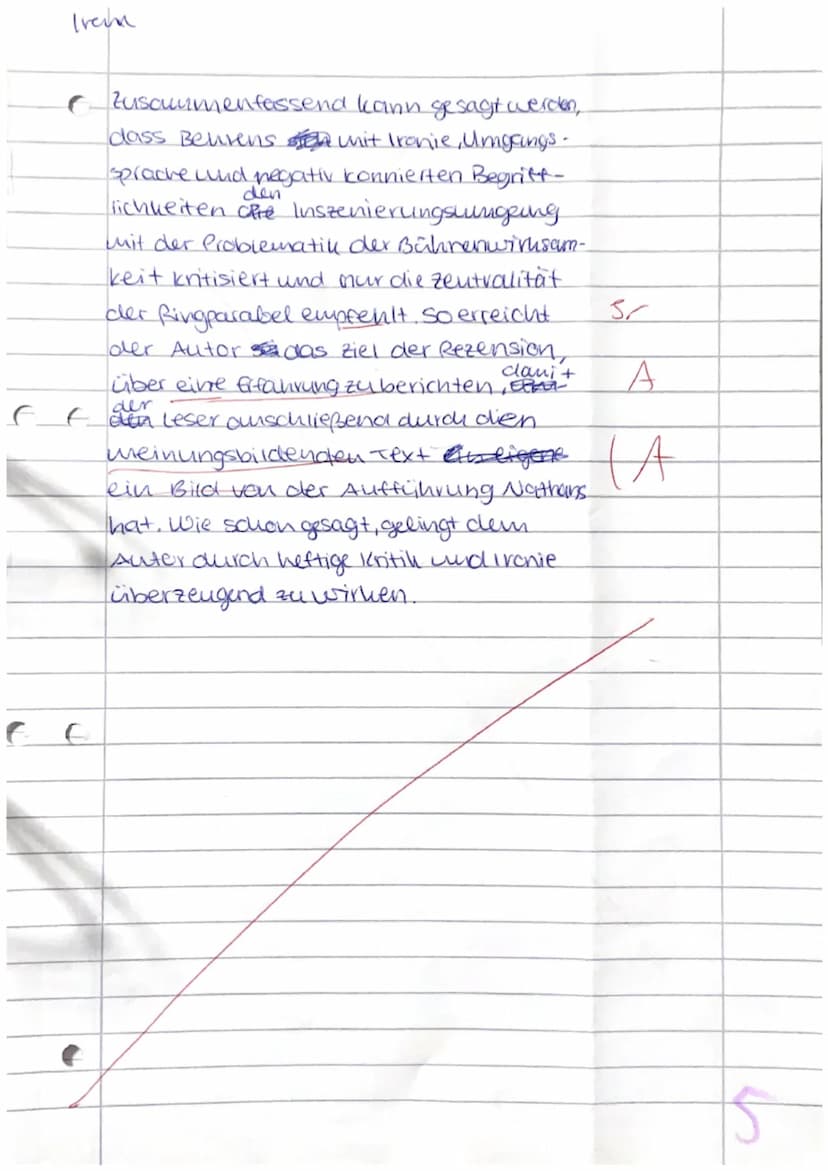 Irem
Zusammenfassend kann gesagt werden,
dass Behrens mit Ironie, Umgangs-
sprache und negativ konnierten Begriff-
lichkeiten den Inszenierungsumgang
mit der Problematik der Bühnenwirksam-
keit kritisiert und nur die Zentralität
der Ringparabel empfehlt. So erreicht
Sr
der Autor das Ziel der Rezension,
über eine Erfahrung zu berichten, damit
A
der Leser anschließend durch dien
meinungsbildenden Text
(A
ein Bild von der Aufführung Nathans
hat. Wie schon gesagt, gelingt dem
Autor durch heftige Kritik und Ironie
überzeugend zu wirken.
5